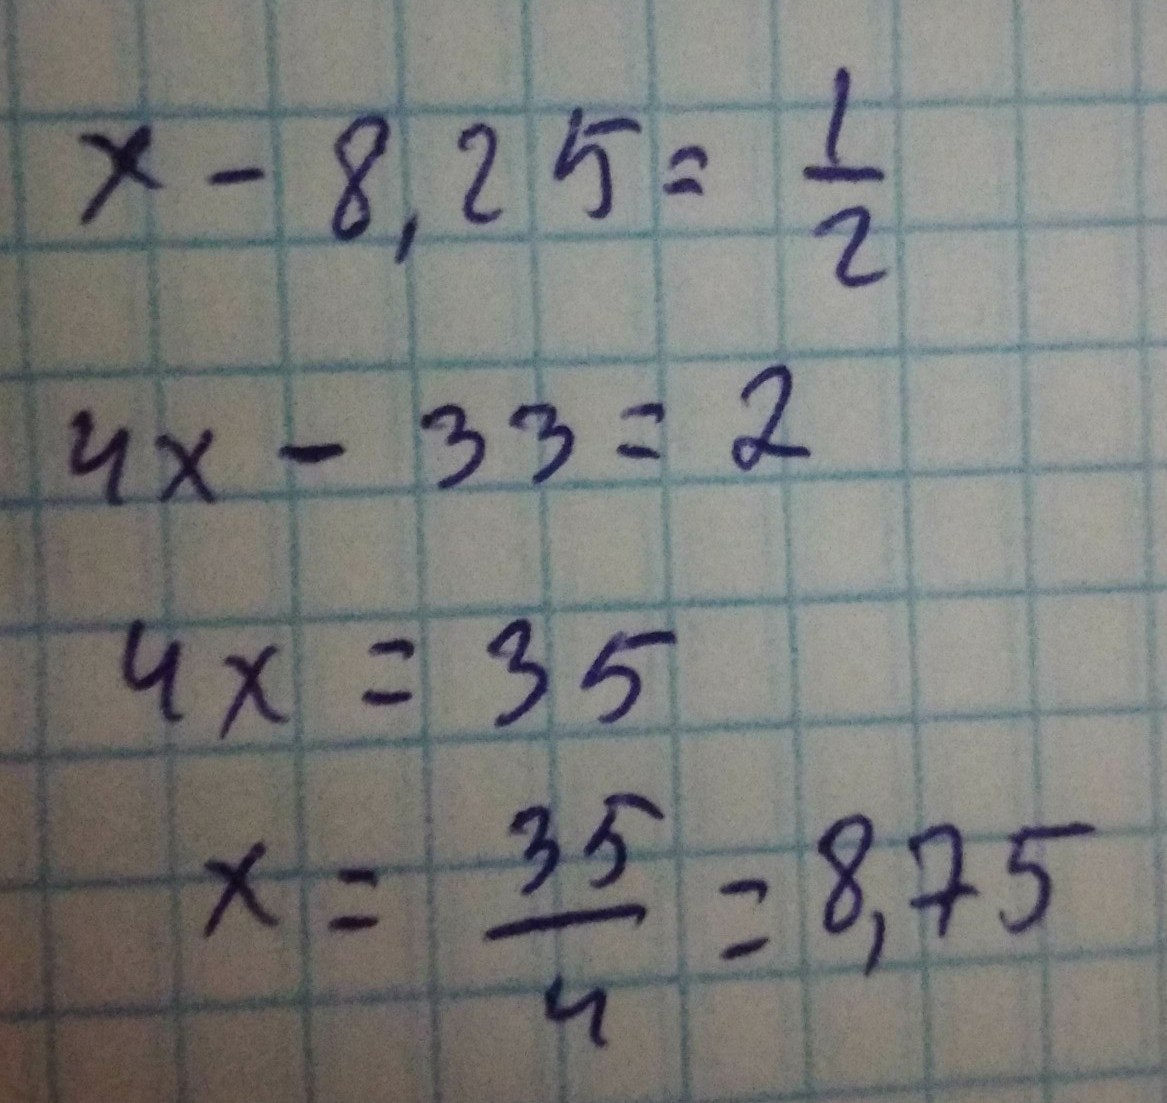 x - 8,25 = 1/2
4x - 33 = 2
4x = 35
x = 35/4 = 8,75